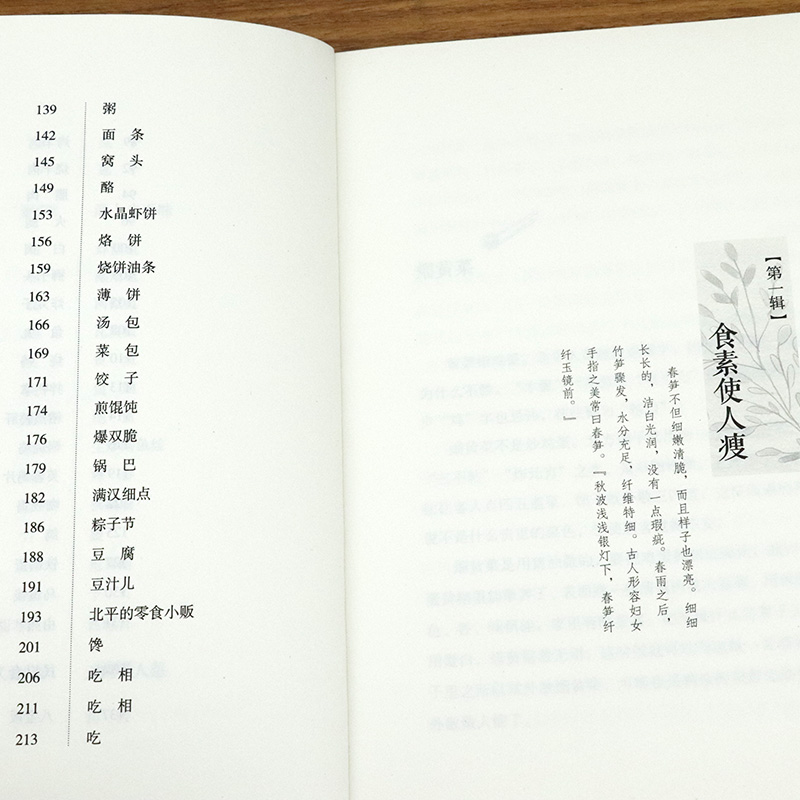 139 粥
142 面 条
145 窝 头
149 酪
153 水晶虾饼
156 烙 饼
159 烧饼油条
163 薄 饼
166 汤 包
169 菜 包
171 饺 子
174 煎馄饨
176 爆双脆
179 锅 巴
182 满汉细点
186 粽子节
188 豆 腐
191 豆汁儿
193 北平的零食小贩
201 馋
206 吃 相
211 吃 相
213 吃
【第一辑】
食素使人瘦
春笋不但细嫩清脆，而且样子也漂亮。细细
长长的，洁白光润，没有一点瑕疵。春雨之后，
竹笋骤发，水分充足，纤维特细。古人形容妇女
手指之美常曰春笋。『秋波浅浅银灯下，春笋纤
纤玉镜前。』